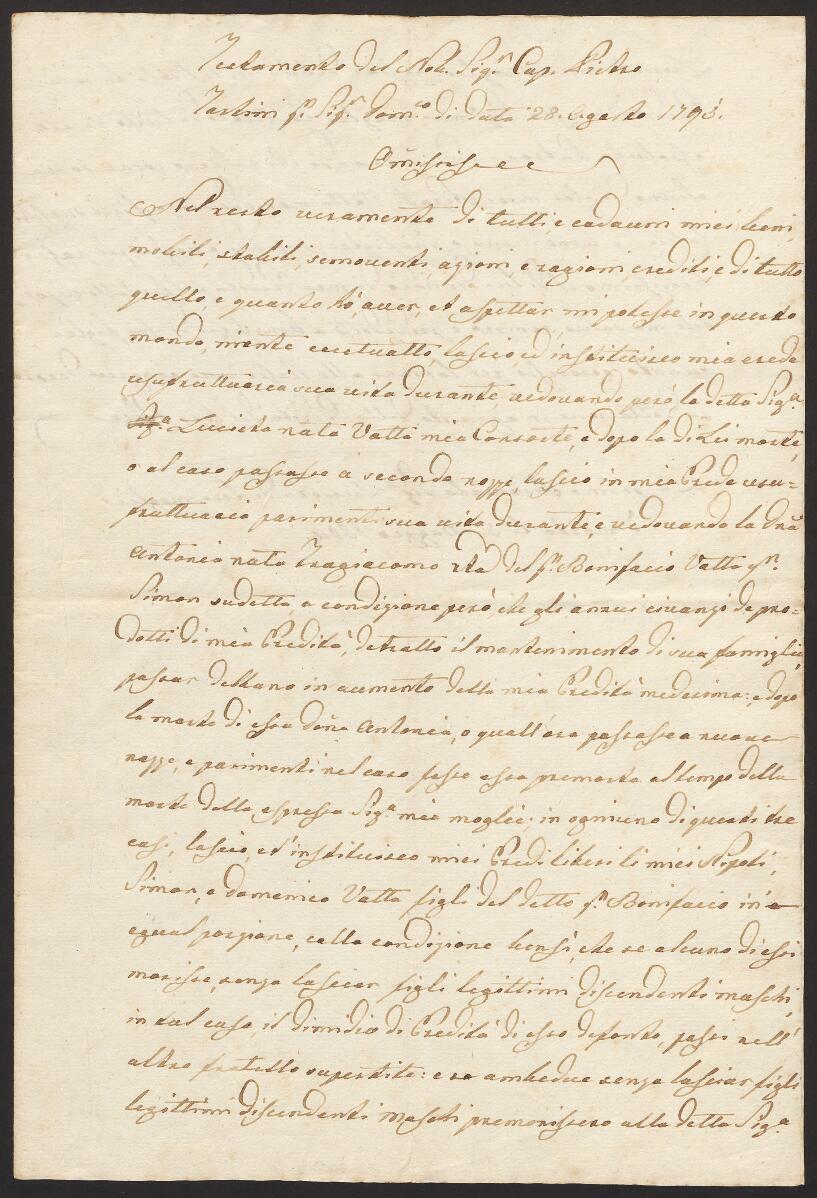 Testamento del Nob. Sig.r Cap. Pietro
Tartini q.m Sig.r Dom.co di data 28. Agosto 1793.
Omissis
Nel resto veramente di tutti, e cadauni miei beni,
mobili, stabili, semoventi, azioni e ragioni, crediti, e di tutto
quello e quanto hò, aver, et aspettar mi potesse in questo
mondo, niente eccetuatto, lascio, ed instituisco mia erede
usufruttuaria sua vita durante, vedovando però la detta Sig.a
Sig.a Lucieta nata Vatta mia Consorte, e dopo la di Lei morte,
o al caso passasse a seconde nozze, lascio in mia Erede usu=
fruttuaria parimenti sua vita durante, e vedovando la Dña
Antonia nata Fragiacomo rta del q.m Bonifacio Vatta q.m
Simon sudetta, a condizione però, che gli annui civanzi de pro=
dotti di mia Eredità, detratto il mantenimento di sua famiglia,
passar debbano in aumento della mia Eredità medesima: e dopo
la morte di essa doña Antonia, o quall'ora passasse a nuove
nozze, e parimenti nel caso fosse essa premorta al tempo della
morte della espressa Sig.a mia moglie; in ogniuno di questi tre
casi, lascio, ed instituisco miei Eredi liberi li miei Nipoti,
Simon, e Domenico Vatta figli del detto q.m Bonifacio in
egual porzione, colla condizione bensì, che se alcuno di essi
morisse, senza lasciar figli legittimi discendenti maschi,
in tal caso, il dimidio di Eredità di esso defonto, passi nell'
altro fratello superstite: e se ambedue senza lasciar figli
legittimi discendenti maschi premorissero alla detta Sig.a